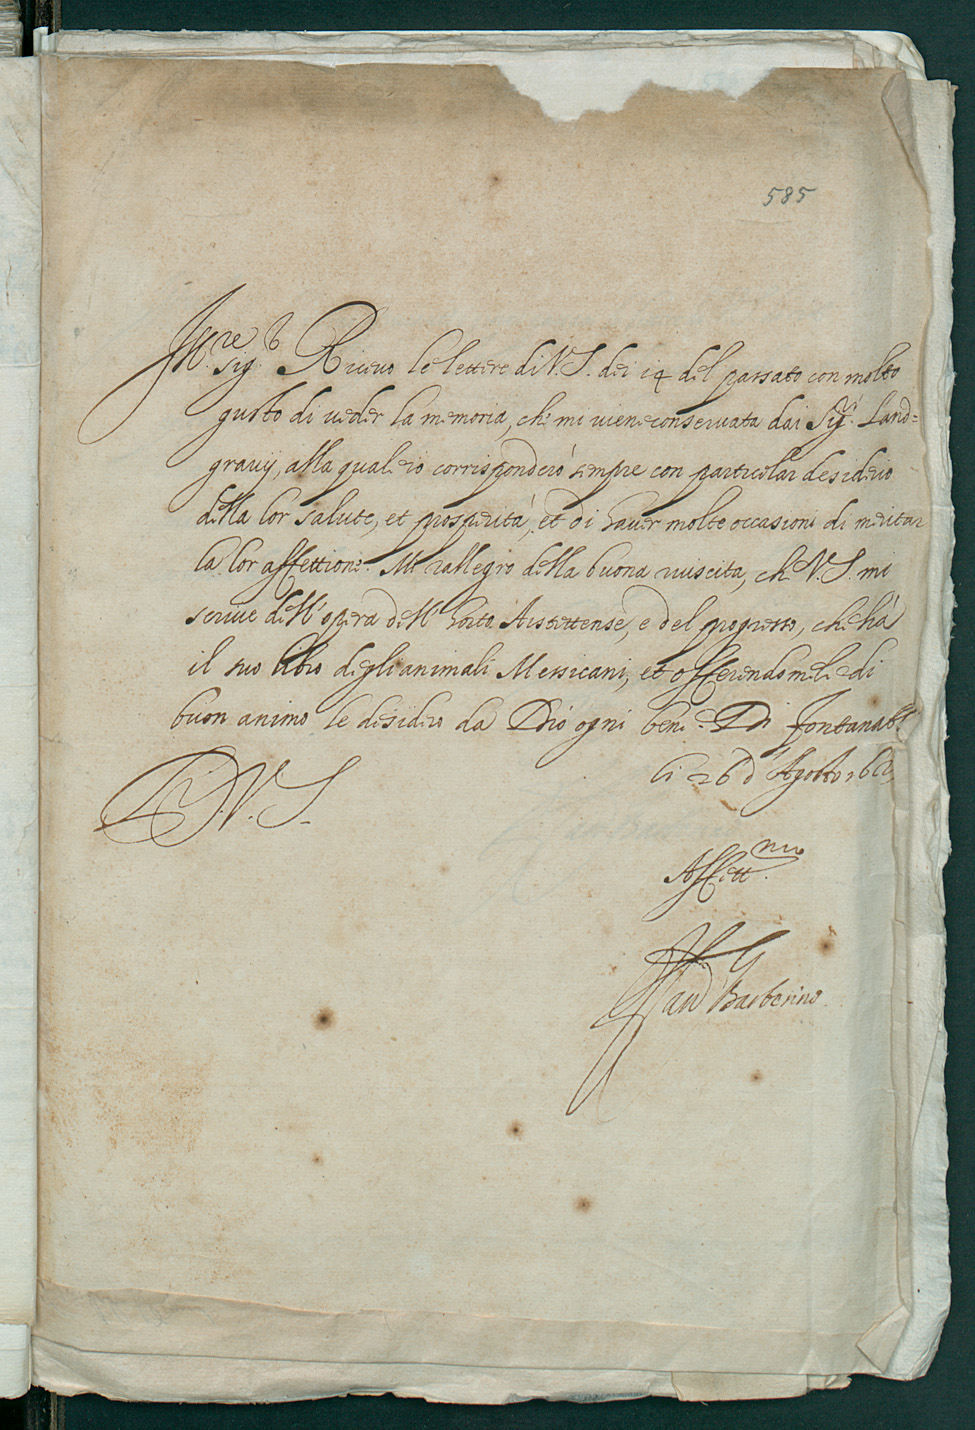 585
Ill.re Sig.r Ricevo le lettere di V.S. dei 14 del passato con molto
gusto di veder la memoria, che mi viene conservata dai Sig.ri Land=
gravij, alla quale io corrisponderò sempre con particolar desiderio
della lor salute, et prosperità, et di haver molte occasioni di meritar
la lor affettione. Mi rallegro della buona riuscita, che V.S. mi
scrive dell'opera dell'horto Aistettense, e del progresso, che hà
il suo libro degli animali Messicani, et offerendomele di
buon animo le desidero da Dio ogni bene. Di Fontanab.
li 26 d'Agosto
Di V.S.
Affett.mo
Il Card Barberino